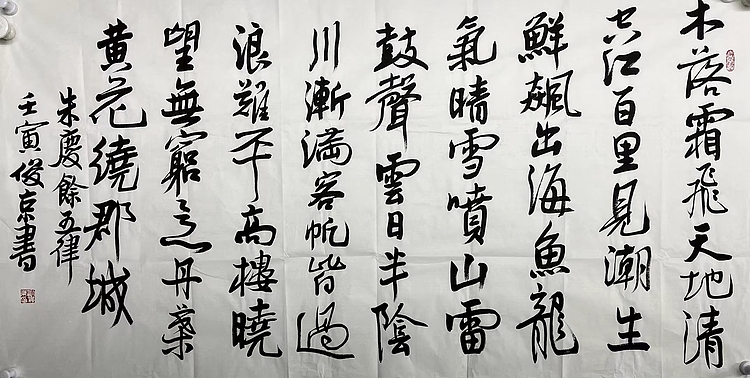 木落霜飛天地清
空江百里見潮生
鮮飆出海魚龍
氣晴雪噴山雷
鼓聲雲日半陰
川漸滿客帆皆過
浪難平高樓曉
望無窮意丹葉
黄花繞郡城
朱慶餘五律
壬寅俊京書